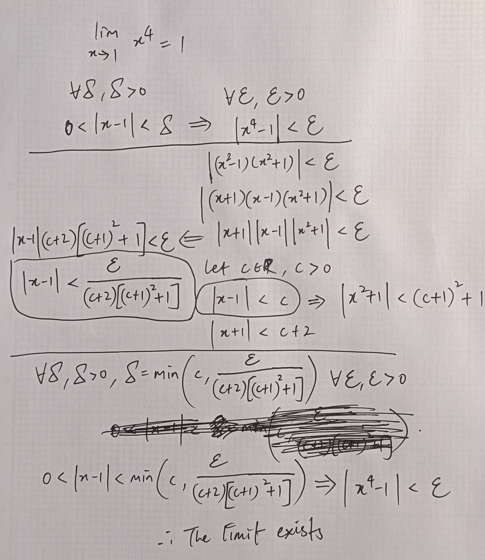 lim x⁴ = 1
x→1
∀δ, δ>0 ∀ε, ε>0
0<|x-1|<δ ⇒ |x⁴-1|<ε
|(x²-1)(x²+1)|<ε
|(x+1)(x-1)(x²+1)|<ε
|x-1|(c+2)[(c+1)²+1]<ε ⇐ |x+1||x-1||x²+1|<ε
Let c∈ℝ, c>0
|x-1| < ε/((c+2)[(c+1)²+1]) |x-1|<c ⇒ |x²+1|<(c+1)²+1
|x+1|<c+2
∀δ, δ>0, δ=min(c, ε/((c+2)[(c+1)²+1])) ∀ε, ε>0
0<|x-1|<min(c, ε/((c+2)[(c+1)²+1])) ⇒ |x⁴-1|<ε
∴ The limit exists